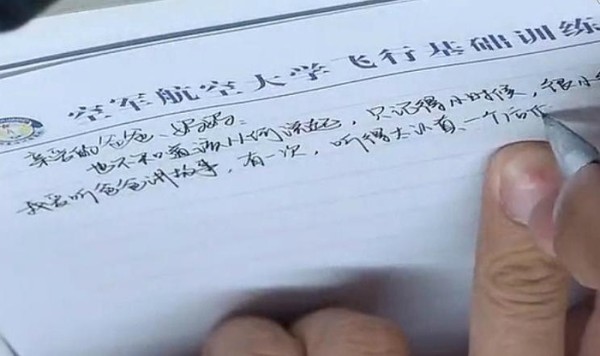 空军航空大学飞行基础训练
亲爱的爸爸、妈妈：
也不知道该从何说起，只记得小时候，很小
我爱听爸爸讲故事，有一次，听得太认真、一个